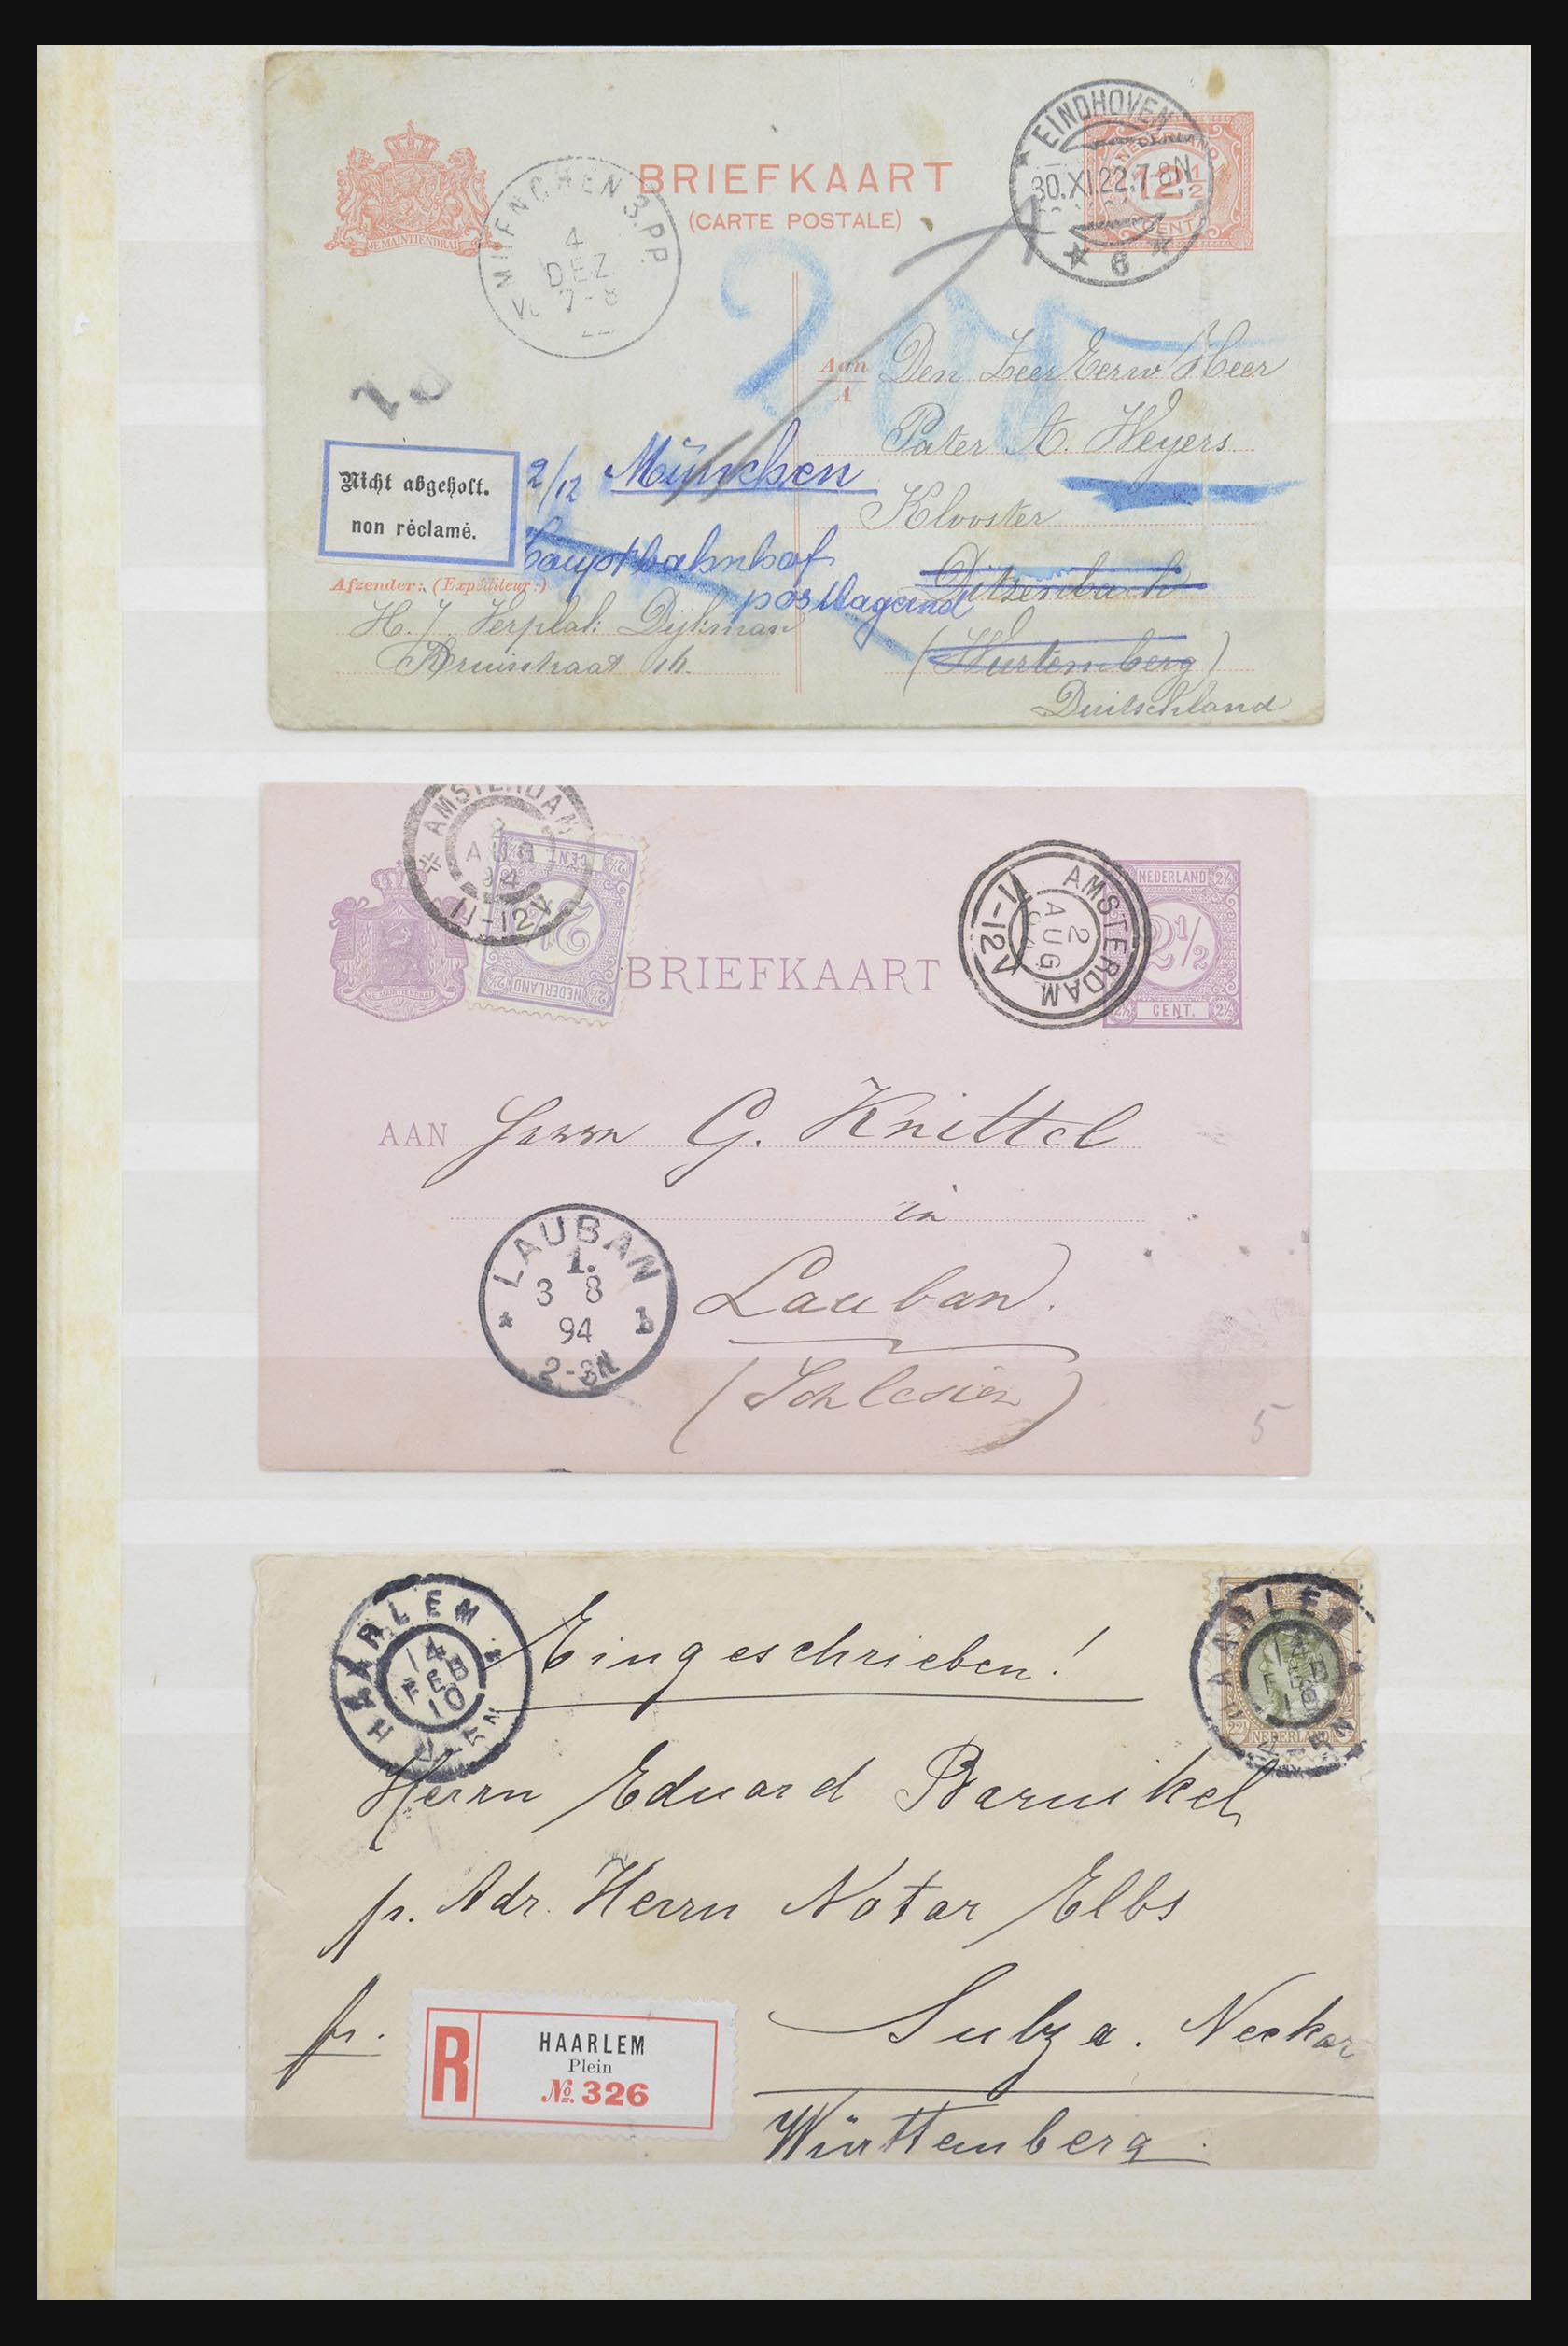 BRIEFKAART
(CARTE POSTALE)
JE MAINTIENDRAI
MUENCHEN 3. P.P.
4
DEZ
7-8
EINDHOVEN
30.XI.22.7-8N
6
NEDERLAND
12½
CENT
Aan
A
Den Zeer Eerw Heer
Pater A. Weyers
Klooster
Ditzenbach
(Wurtemberg)
Duitschland
2/12 München
Hauptbahnhof
postlagernd
Nicht abgeholt.
non réclamé.
Afzender: (Expéditeur:)
H. J. Verplak: Dijkman
Kruisstraat
AMSTERDAM
2
AUG
94
11-12V
2½
CENT
NEDERLAND
BRIEFKAART
AMSTERDAM
2
AUG
11-12V
NEDERLAND 2½
2½
2½ CENT. 2½
AAN Herrn G. Knittel
in
Lauban.
(Schlesien)
LAUBAN
1.
3 8
94
* b
2-3N
5
HAARLEM
14
FEB
10
4-5N
Eingeschrieben!
HAARLEM
4-5N
22½
NEDERLAND
Herrn Eduard Barnikel
pr. Adr. Herrn Notar Elbs
fr.
Sulz a. Neckar
Württemberg.
R
HAARLEM
Plein
№ 326